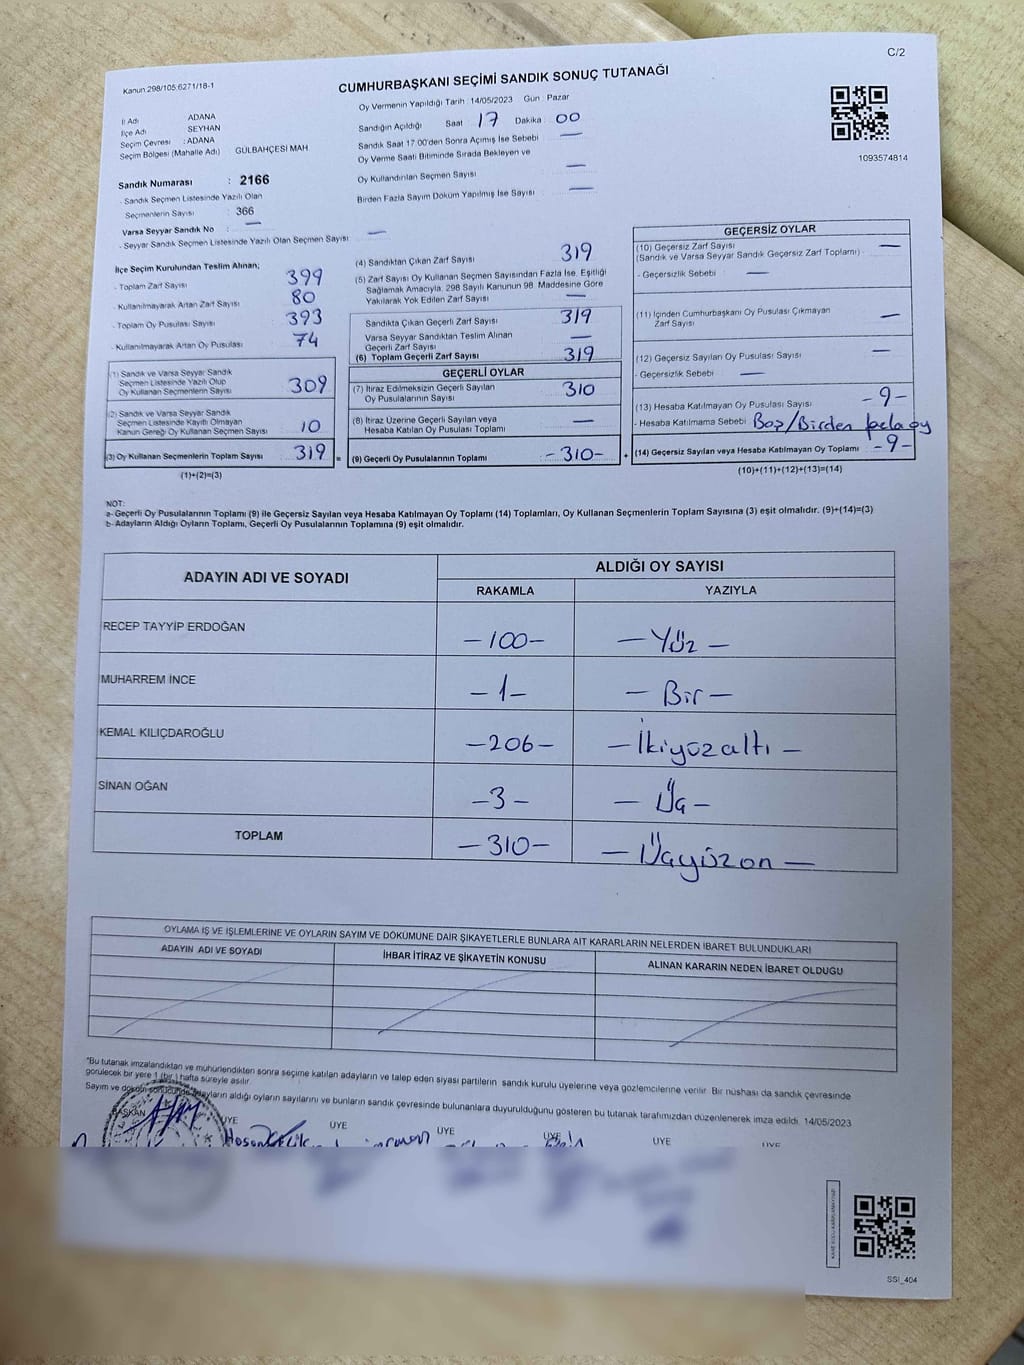 C/2
Kanun 298/105,6271/18-1
CUMHURBAŞKANI SEÇİMİ SANDIK SONUÇ TUTANAĞI
Oy Vermenin Yapıldığı Tarih : 14/05/2023 Gün : Pazar
İl Adı ADANA
İlçe Adı SEYHAN
Seçim Çevresi : ADANA
Seçim Bölgesi (Mahalle Adı) GÜLBAHÇESİ MAH
Sandığın Açıldığı Saat 17 Dakika 00
Sandık Saat 17:00'den Sonra Açılmış İse Sebebi —
Oy Verme Saati Bitiminde Sırada Bekleyen ve
Oy Kullandırılan Seçmen Sayısı —
Birden Fazla Sayım Döküm Yapılmış İse Sayısı —
1093574814
Sandık Numarası : 2166
- Sandık Seçmen Listesinde Yazılı Olan
Seçmenlerin Sayısı : 366
Varsa Seyyar Sandık No : —
- Seyyar Sandık Seçmen Listesinde Yazılı Olan Seçmen Sayısı —
İlçe Seçim Kurulundan Teslim Alınan;
- Toplam Zarf Sayısı 399
- Kullanılmayarak Artan Zarf Sayısı 80
- Toplam Oy Pusulası Sayısı 393
- Kullanılmayarak Artan Oy Pusulası 74
(1) Sandık ve Varsa Seyyar Sandık
Seçmen Listesinde Yazılı Olup
Oy Kullanan Seçmenlerin Sayısı 309
(2) Sandık ve Varsa Seyyar Sandık
Seçmen Listesinde Kayıtlı Olmayan
Kanun Gereği Oy Kullanan Seçmen Sayısı 10
(3) Oy Kullanan Seçmenlerin Toplam Sayısı 319 =
(1)+(2)=(3)
(4) Sandıktan Çıkan Zarf Sayısı 319
(5) Zarf Sayısı Oy Kullanan Seçmen Sayısından Fazla İse, Eşitliği
Sağlamak Amacıyla, 298 Sayılı Kanunun 98. Maddesine Göre
Yakılarak Yok Edilen Zarf Sayısı —
Sandıkta Çıkan Geçerli Zarf Sayısı 319
Varsa Seyyar Sandıktan Teslim Alınan
Geçerli Zarf Sayısı —
(6) Toplam Geçerli Zarf Sayısı 319
GEÇERLİ OYLAR
(7) İtiraz Edilmeksizin Geçerli Sayılan
Oy Pusulalarının Sayısı 310
(8) İtiraz Üzerine Geçerli Sayılan veya
Hesaba Katılan Oy Pusulası Toplamı —
(9) Geçerli Oy Pusulalarının Toplamı -310- +
GEÇERSİZ OYLAR
(10) Geçersiz Zarf Sayısı —
(Sandık ve Varsa Seyyar Sandık Geçersiz Zarf Toplamı)
- Geçersizlik Sebebi : —
(11) İçinden Cumhurbaşkanı Oy Pusulası Çıkmayan
Zarf Sayısı —
(12) Geçersiz Sayılan Oy Pusulası Sayısı —
- Geçersizlik Sebebi : —
(13) Hesaba Katılmayan Oy Pusulası Sayısı -9-
- Hesaba Katılmama Sebebi : Boş/Birden fazla oy
(14) Geçersiz Sayılan veya Hesaba Katılmayan Oy Toplamı -9-
(10)+(11)+(12)+(13)=(14)
NOT:
a- Geçerli Oy Pusulalarının Toplamı (9) ile Geçersiz Sayılan veya Hesaba Katılmayan Oy Toplamı (14) Toplamları, Oy Kullanan Seçmenlerin Toplam Sayısına (3) eşit olmalıdır. (9)+(14)=(3)
b- Adayların Aldığı Oyların Toplamı, Geçerli Oy Pusulalarının Toplamına (9) eşit olmalıdır.
ADAYIN ADI VE SOYADI ALDIĞI OY SAYISI
RAKAMLA YAZIYLA
RECEP TAYYİP ERDOĞAN -100- - Yüz -
MUHARREM İNCE -1- - Bir -
KEMAL KILIÇDAROĞLU -206- - İkiyüzaltı -
SİNAN OĞAN -3- - Üç -
TOPLAM -310- - Üçyüzon -
OYLAMA İŞ VE İŞLEMLERİNE VE OYLARIN SAYIM VE DÖKÜMÜNE DAİR ŞİKAYETLERLE BUNLARA AİT KARARLARIN NELERDEN İBARET BULUNDUKLARI
ADAYIN ADI VE SOYADI İHBAR İTİRAZ VE ŞİKAYETİN KONUSU ALINAN KARARIN NEDEN İBARET OLDUĞU
*Bu tutanak imzalandıktan ve mühürlendikten sonra seçime katılan adayların ve talep eden siyasi partilerin sandık kurulu üyelerine veya gözlemcilerine verilir. Bir nüshası da sandık çevresinde
görülecek bir yere 1 (bir) hafta süreyle asılır.
Sayım ve döküm sonucunda adayların aldığı oyların sayılarını ve bunların sandık çevresinde bulunanlara duyurulduğunu gösteren bu tutanak tarafımızdan düzenlenerek imza edildi. 14/05/2023
BAŞKAN ÜYE ÜYE ÜYE ÜYE ÜYE ÜYE
Hasan Çelik
SSİ_404